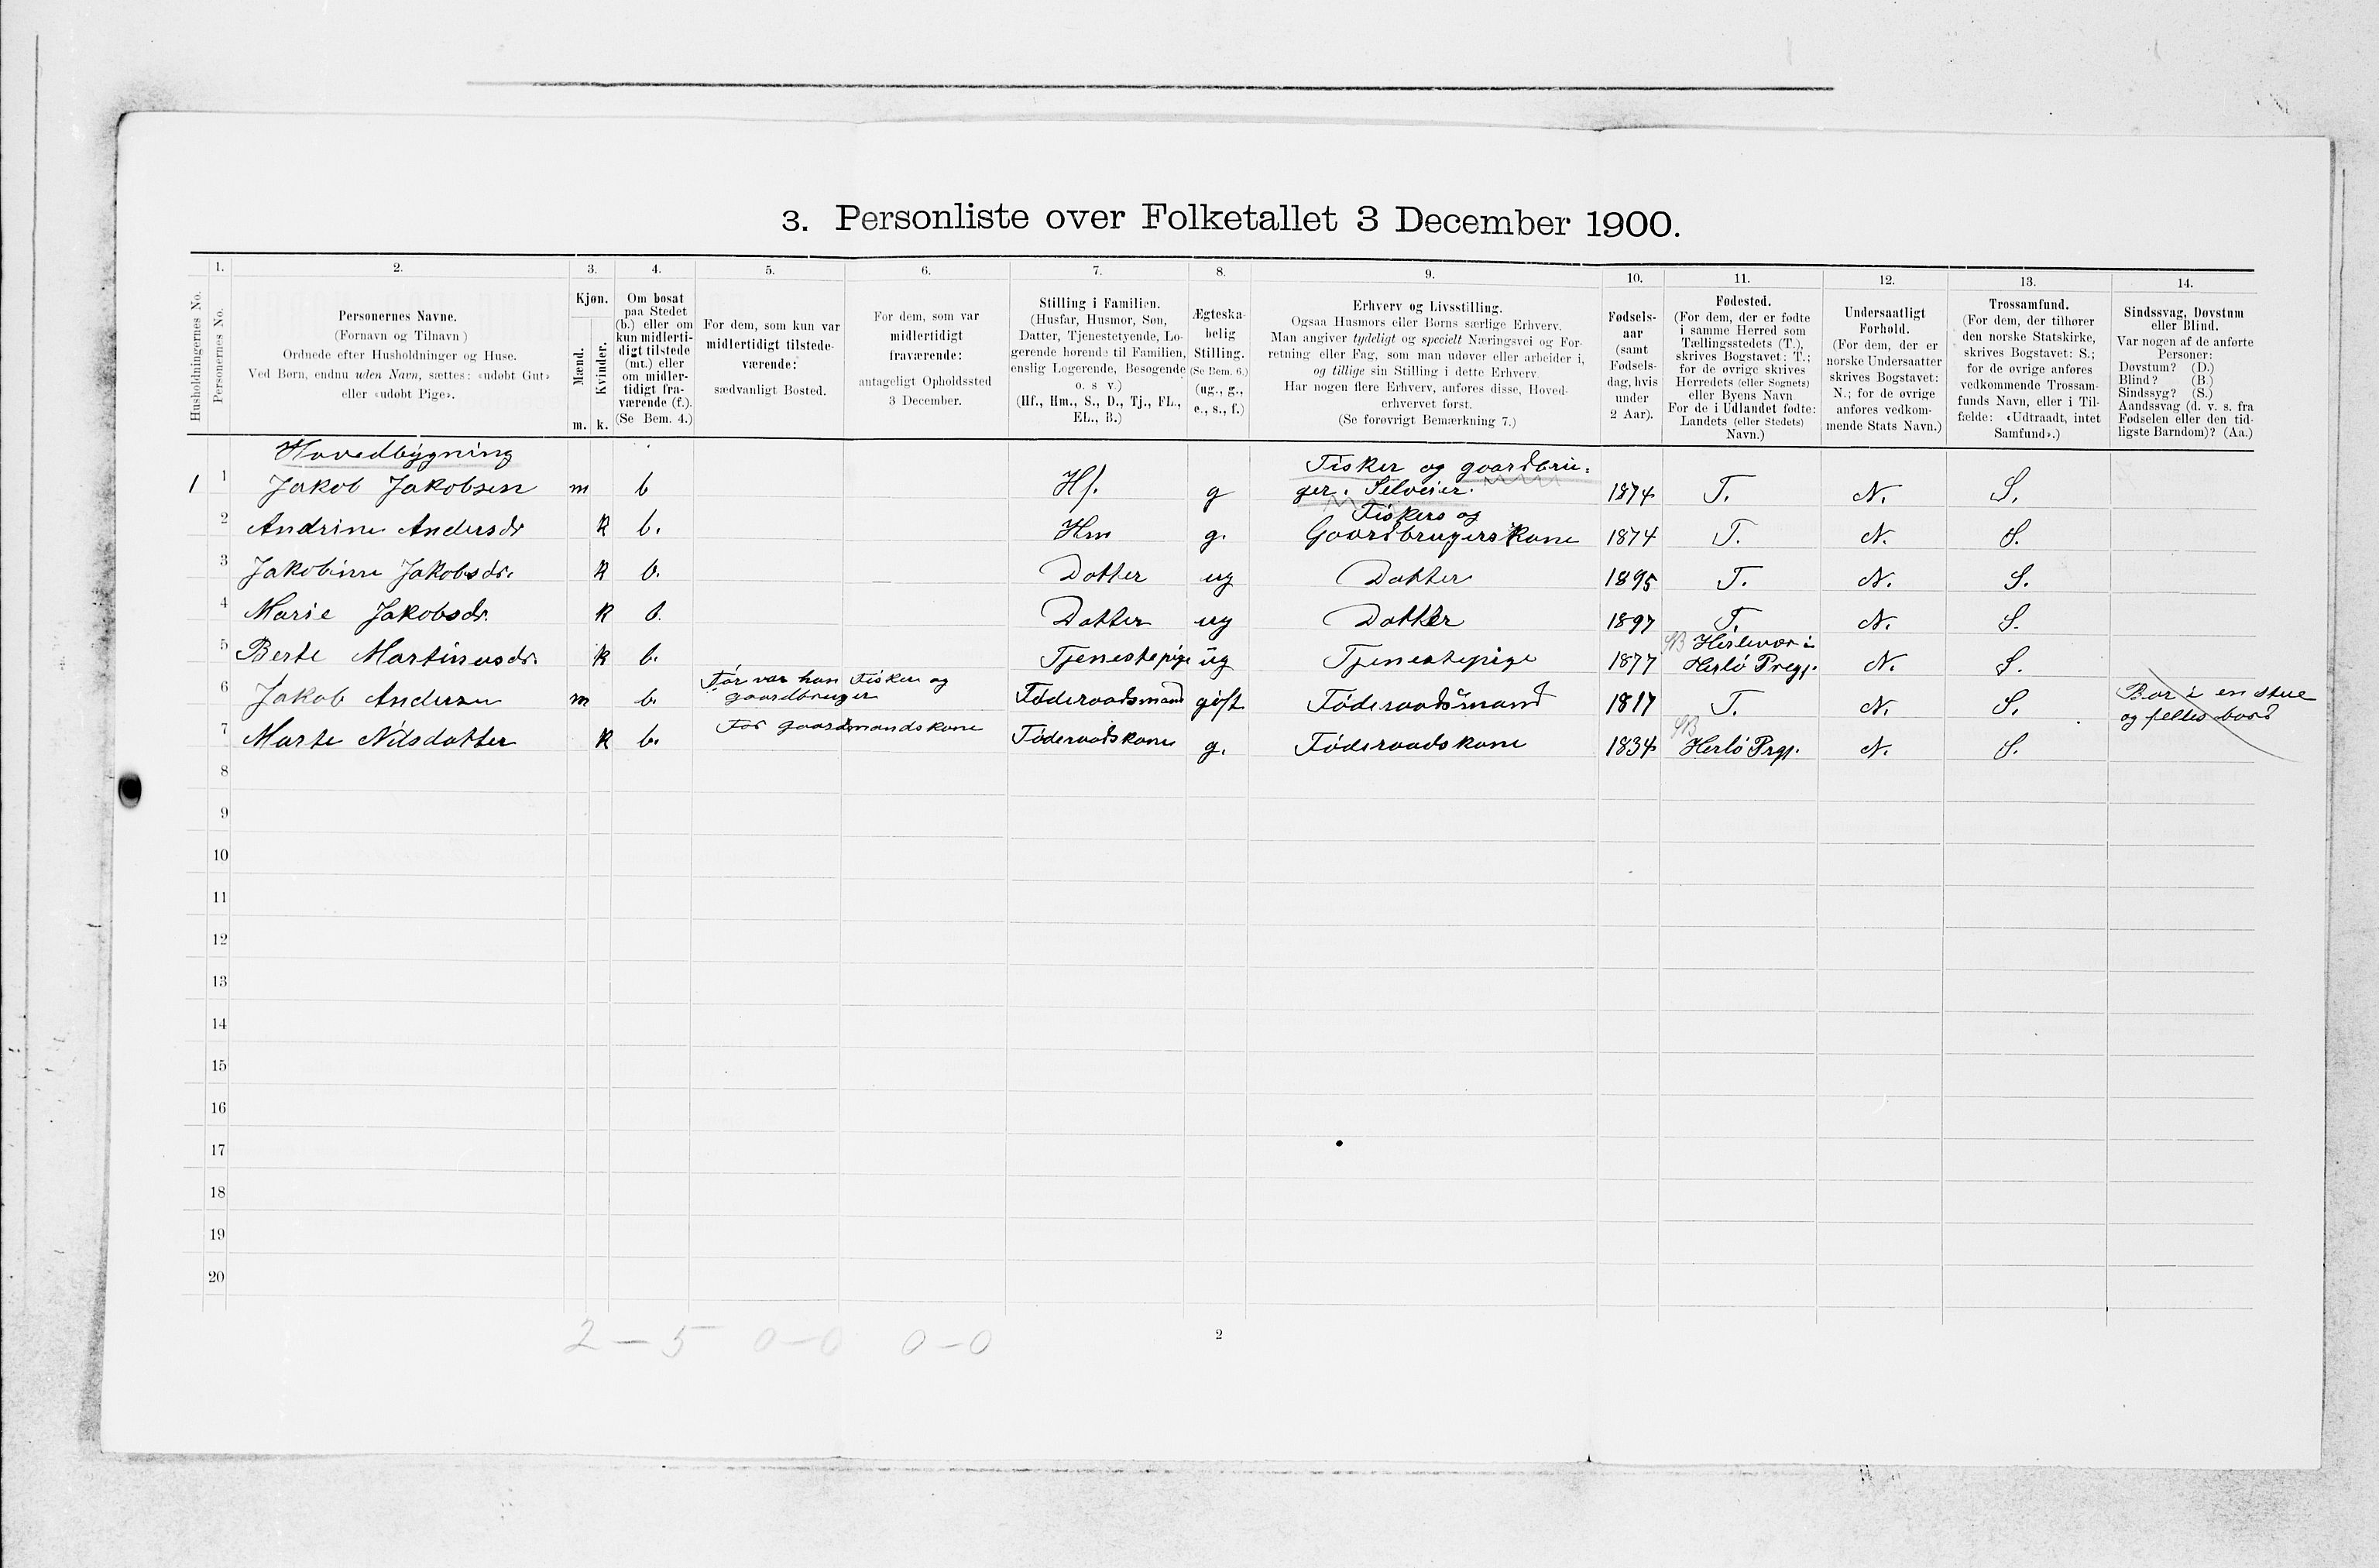 3. Personliste over Folketallet 3 December 1900.
1. 2. 3. 4. 5. 6. 7. 8. 9. 10. 11. 12. 13. 14.
Husholdningernes No.
Personernes No.
Personernes Navne.
(Fornavn og Tilnavn)
Ordnede efter Husholdninger og Huse.
Ved Børn, endnu uden Navn, sættes: «udøbt Gut»
eller «udøbt Pige».
Kjøn.
Mænd.
Kvinder.
m. k.
Om bosat
paa Stedet
(b.) eller om
kun midlerti-
digt tilstede
(mt.) eller
om midler-
tidigt fra-
værende (f.).
(Se Bem. 4.)
For dem, som kun var
midlertidigt tilstede-
værende:
sædvanligt Bosted.
For dem, som var
midlertidigt
fraværende:
antageligt Opholdssted
3 December.
Stilling i Familien.
(Husfar, Husmor, Søn,
Datter, Tjenestetyende, Lo-
gerende hørende til Familien,
enslig Logerende, Besøgende
o. s v.)
(Hf., Hm., S., D., Tj., FL.,
EL., B.)
Ægteska-
belig
Stilling.
(Se Bem. 6.)
(ug., g.,
e., s., f.)
Erhverv og Livsstilling.
Ogsaa Husmors eller Børns særlige Erhverv.
Man angiver tydeligt og specielt Næringsvei og For-
retning eller Fag, som man udøver eller arbeider i,
og tillige sin Stilling i dette Erhverv
Har nogen flere Erhverv, anføres disse, Hoved-
erhvervet først.
(Se forøvrigt Bemærkning 7.)
Fødsels-
aar
(samt
Fødsels-
dag, hvis
under
2 Aar).
Fødested.
(For dem, der er fødte
i samme Herred som
Tællingsstedets (T.),
skrives Bogstavet: T.;
for de øvrige skrives
Herredets (eller Sognets)
eller Byens Navn
For de i Udlandet fødte:
Landets (eller Stedets)
Navn.)
Undersaatligt
Forhold.
(For dem, der er
norske Undersaatter
skrives Bogstavet:
N.; for de øvrige
anføres vedkom-
mende Stats Navn.)
Trossamfund.
(For dem, der tilhører
den norske Statskirke,
skrives Bogstavet: S.;
for de øvrige anføres
vedkommende Trossam-
funds Navn, eller i Til-
fælde: «Udtraadt, intet
Samfund».)
Sindssvag, Døvstum
eller Blind.
Var nogen af de anførte
Personer:
Døvstum? (D.)
Blind? (B.)
Sindssyg? (S.)
Aandssvag (d. v. s. fra
Fødselen eller den tid-
ligste Barndom)? (Aa.)
Hovedbygning
Fisker og gaardbru-
1 1 Jakob Jakobsen m b Hf. g ger. Selveier. 1874 T. N. S.
Fiskers og
2 Andrine Andersdr k b. Hm g. Gaardbrugerskone 1874 T. N. S.
3 Jakobine Jakobsdr. k b. Datter ug Datter 1895 T. N. S.
4 Marie Jakobsdr. k b. Datter ug Datter 1897 T. N. S.
SB Herlevær i
5 Berte Martinusdr. k b. Tjenestepige ug Tjenestepige 1877 Herlö Pregj. N. S.
Før var han Fisker og
gaardbruger
6 Jakob Andersen m b. Föderaadsmand gift Föderaadsmand 1817 T. N. S. Bor i en stue
og felles bord
For gaardmandskone
SB
7 Marte Nilsdatter k b. Föderaadskone g. Föderaadskone 1834 Herlö Prgj. N. S.
8
9
10
11
12
13
14
15
16
17
18
19
20
2 – 5 0 – 0 0 – 0
2